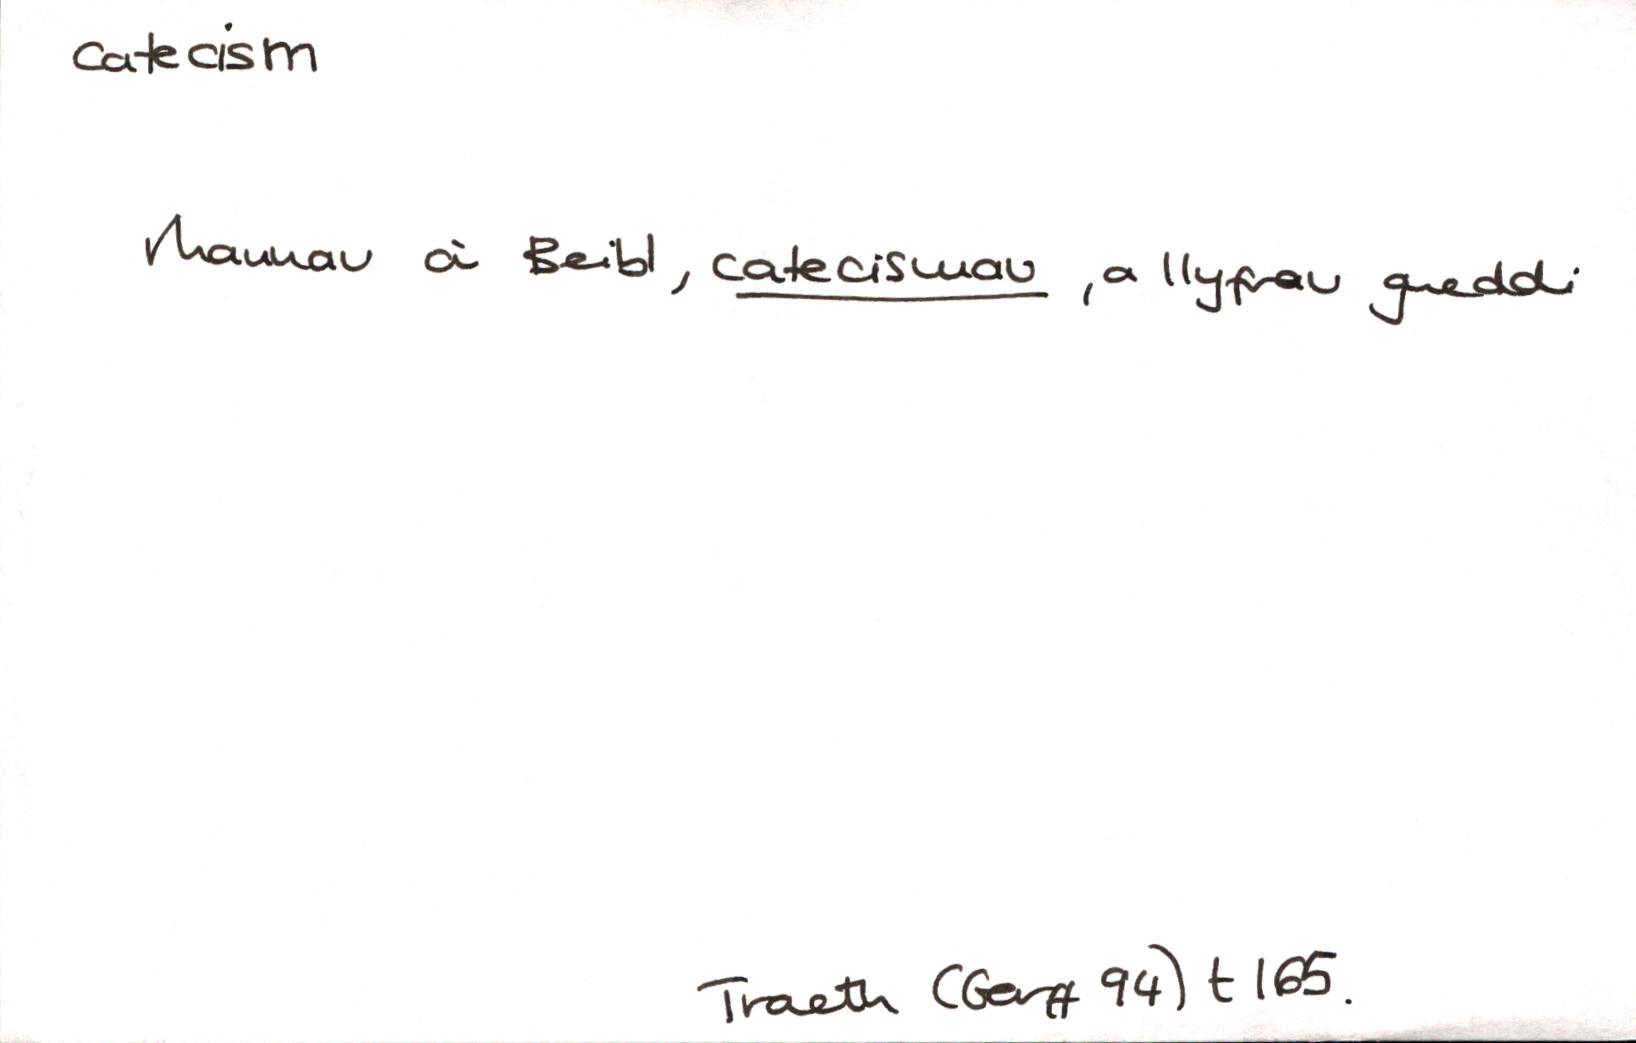 catecism
rhannau o'r Beibl, catecismau, a llyfrau gweddi
Traeth (Gorff 94) t 165.